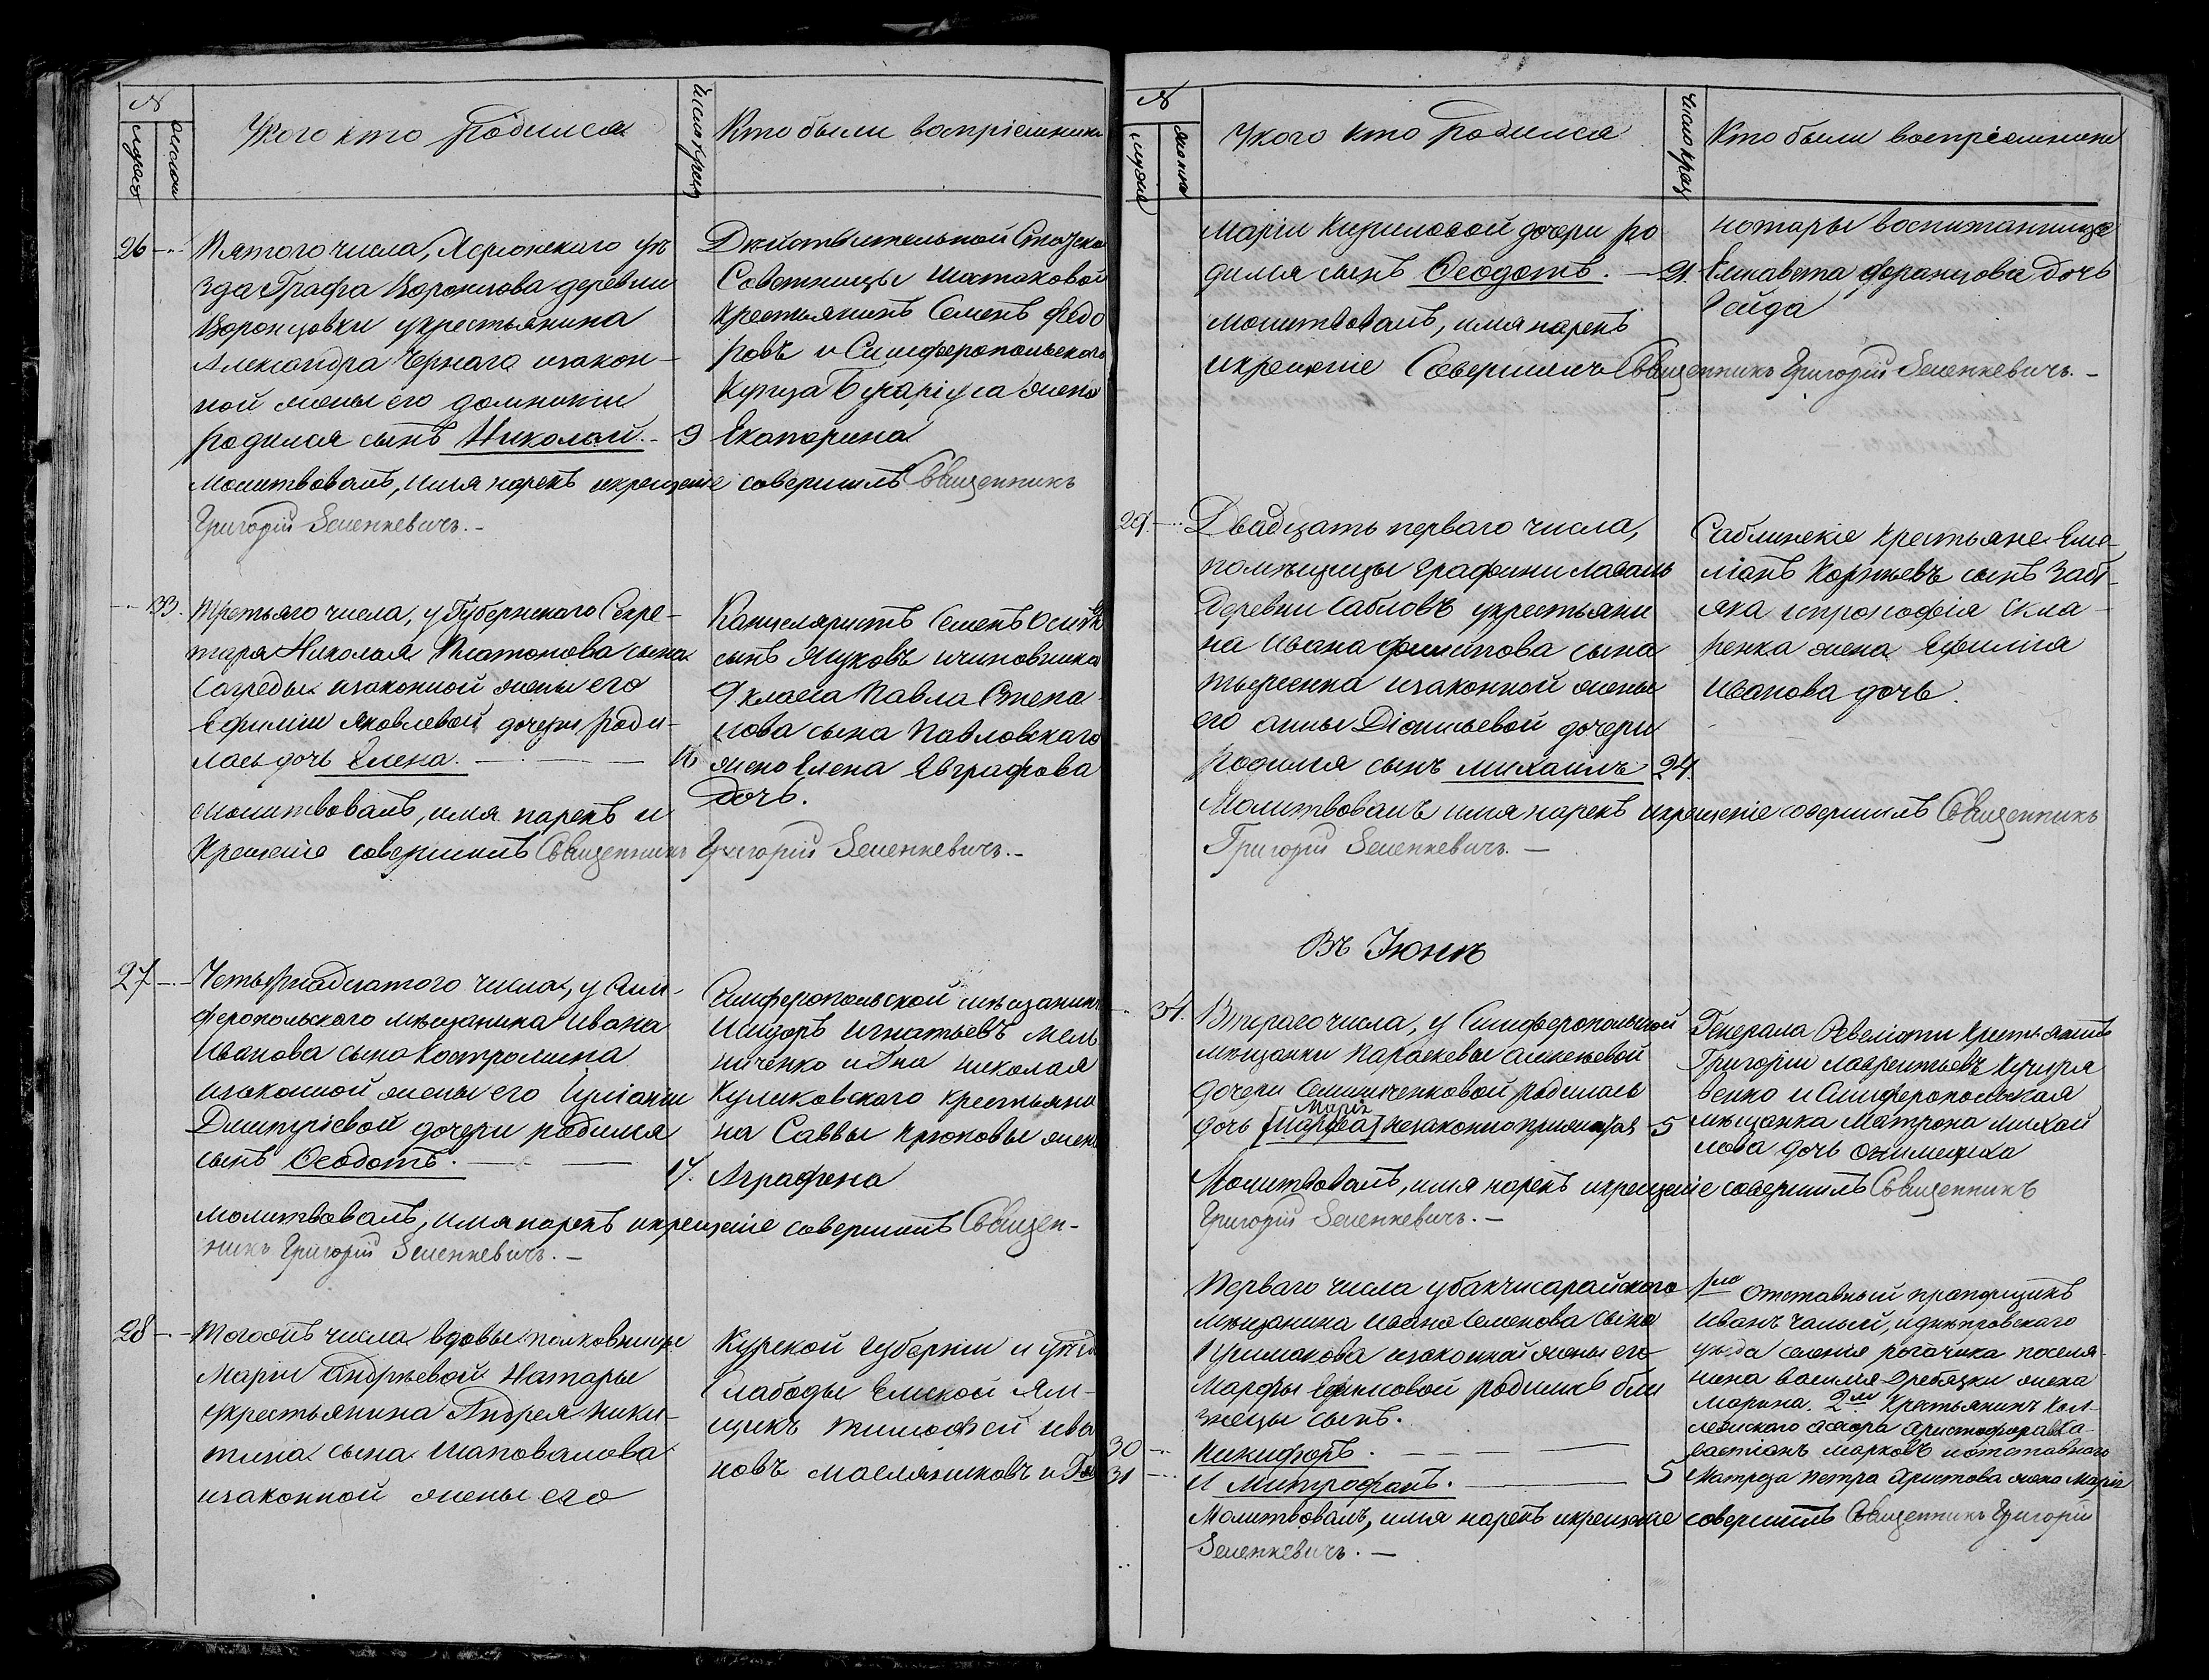 №
мужеск
женск
У кого кто родился
Число крещ
Кто были воспріемники
26
Пятого числа, Херсонскаго уѣ
зда Графа Воронцова деревни
Воронцовки у крестьянина
Александра Чернаго изакон-
ной жены его Домникіи
родился сынъ Николай. - 9
Действительной Статско
Советницы Шостаковой
Крестьянинъ Семенъ Федо
ровъ и Симферопольскаго
Купца жена
Екатерина
молитвовалъ, имя нарекъ икрещеніе совершилъ Священникъ
Григорій Зененкевичъ. -
33.
Третьяго числа, у Губернскаго Секре-
таря Николая Платонова сына
изаконной жены его
Ефиміи Яковлевой дочери роди-
лась дочь Елена. - 16
Канцеляристъ Семенъ
сынъ Жуковъ ичиновника
9 класса Павла Степа-
нова сына Павловскаго
жена Елена Евграфова
дочь.
молитвовалъ, имя нарекъ и
крещеніе совершилъ Священникъ Григорій Зененкевичъ. -
27
Четырнадцатого числа, у Сим-
феропольского мѣщанина Ивана
Иванова сына Костромина
изаконной жены его Іуліаніи
Дмитріевой дочери родился
сынъ Ѳеодотъ. - 17.
Симферопольской мѣщанинъ
Исидоръ Игнатьевъ Мель
ниченко и Николая
Куликовского крестьяни
на Саввы Крюковы жена
Аграфена
молитвовалъ, имя нарекъ икрещеніе совершилъ Священ-
никъ Григорій Зененкевичъ. -
28
Тогожъ числа вдовы полковницы
Маріи Андрѣевой Нотары
укрестьянина Андрея Ники-
тина сына Шаповалова
изаконной жены его
Курской Губерніи и уѣзда
Слабоды Ямской Ям-
щикъ Тимофей Ива
новъ Масляниковъ и
№
мужеск
женска
У кого кто родился
Число крещ
Кто были воспріемники
Маріи Кириловой дочери ро
дился сынъ Ѳеодотъ. - 21.
нотары воспитанница
Елисавета Францова дочь
молитвовалъ, имя нарекъ
икрещеніе Совершилъ Священникъ Григорій Зененкевичъ. -
29.
Двадцать перваго числа,
помѣщицы Графини Лаваль
Деревни Сабловъ укрестьяни
на Ивана Филипова сына
изаконной жены
его Анны Діонисьевой дочери
родился сынъ Михаилъ 24
Саблинскіе крестьяне Еме-
ліанъ Корнѣевъ сынъ Забі-
яка Скля-
ренка жена Ефимія
Иванова дочь.
Молитвовалъ имя нарекъ икрещеніе совершилъ Священникъ
Григорій Зененкевичъ. -
Въ Іюнѣ
34.
Втораго числа, у Симферопольской
мѣщанки Параскевы Алексѣевой
дочери родилась
Марія
дочь [Марфа] незаконно прижитая 5
Генерала Ревеліоти крестьянинъ
Григорій Лаврентьевъ Кучеря
венко и Симферопольская
мѣщанка Матрона Михай
лова дочь
Молитвовалъ, имя нарекъ икрещеніе совершилъ Священникъ
Григорій Зененкевичъ. -
Перваго числа убакчисарайскаго
мѣщанина Ивана Семенова сына
изаконной жены его
Марфы родились бли
знецы сынъ.
30
Никифоръ.
31
И Митрофанъ. 5
1го Отставный прапорщикъ
Иванъ Чалый, иднѣпровскаго
уѣзда селенія рогачика поселя-
нина Василія жена
Марина. 2й Крестьянинъ Кол-
лежского
Марковъ иотставнаго
Матроза Петра Христова жена Марія
Молитвовалъ, имя нарекъ икрещеніе совершилъ Священникъ Григорій
Зененкевичъ. -